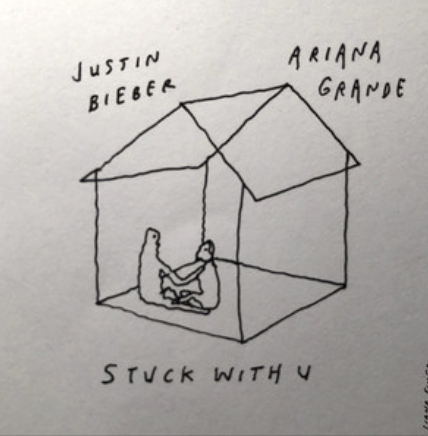 JUSTIN
BIEBER
ARIANA
GRANDE
STUCK WITH U